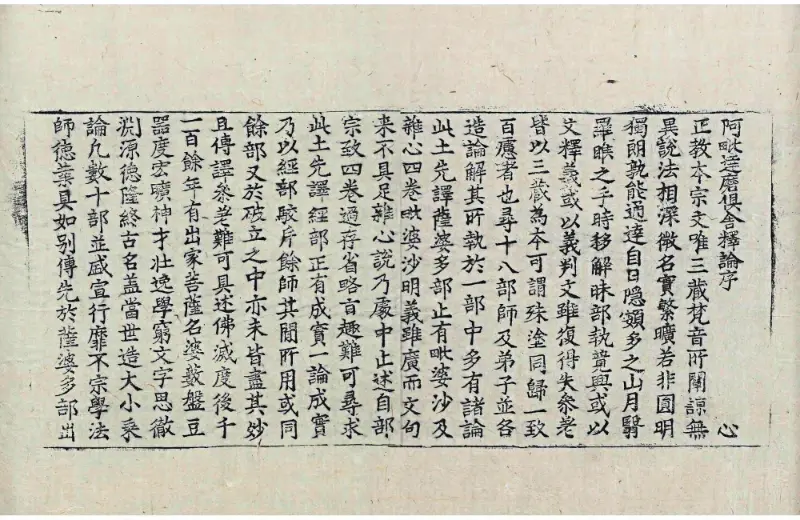 阿毗達磨俱舍釋論序 心
正教本宗文唯三藏梵音所闡諒無
異說法相深微名實繁曠若非圓明
獨朗孰能通達自日隱頞多之山月翳
羅睺之手時移解昧部執競興或以
文釋義或以義判文雖復得失參差
皆以三藏為本可謂殊塗同歸一致
百慮者也尋十八部師及弟子並各
造論解其所執於一部中多有諸論
此土先譯薩婆多部止有毗婆沙及
雜心四卷毗婆沙明義雖廣而文句
来不具足雜心說乃處中止述自部
宗致四卷過存省略旨趣難可尋求
此土先譯經部正有成實一論成實
乃以經部駮斥餘師其間所用或同
餘部又於破立之中亦未皆盡其妙
且傳譯參差難可具述佛滅度後千
一百餘年有出家菩薩名婆藪盤豆
器度宏曠神才壯逸學窮文字思徹
淵源德隆終古名盖當世造大小乘
論凡數十部並盛宣行靡不宗學法
師德業具如別傳先於薩婆多部出